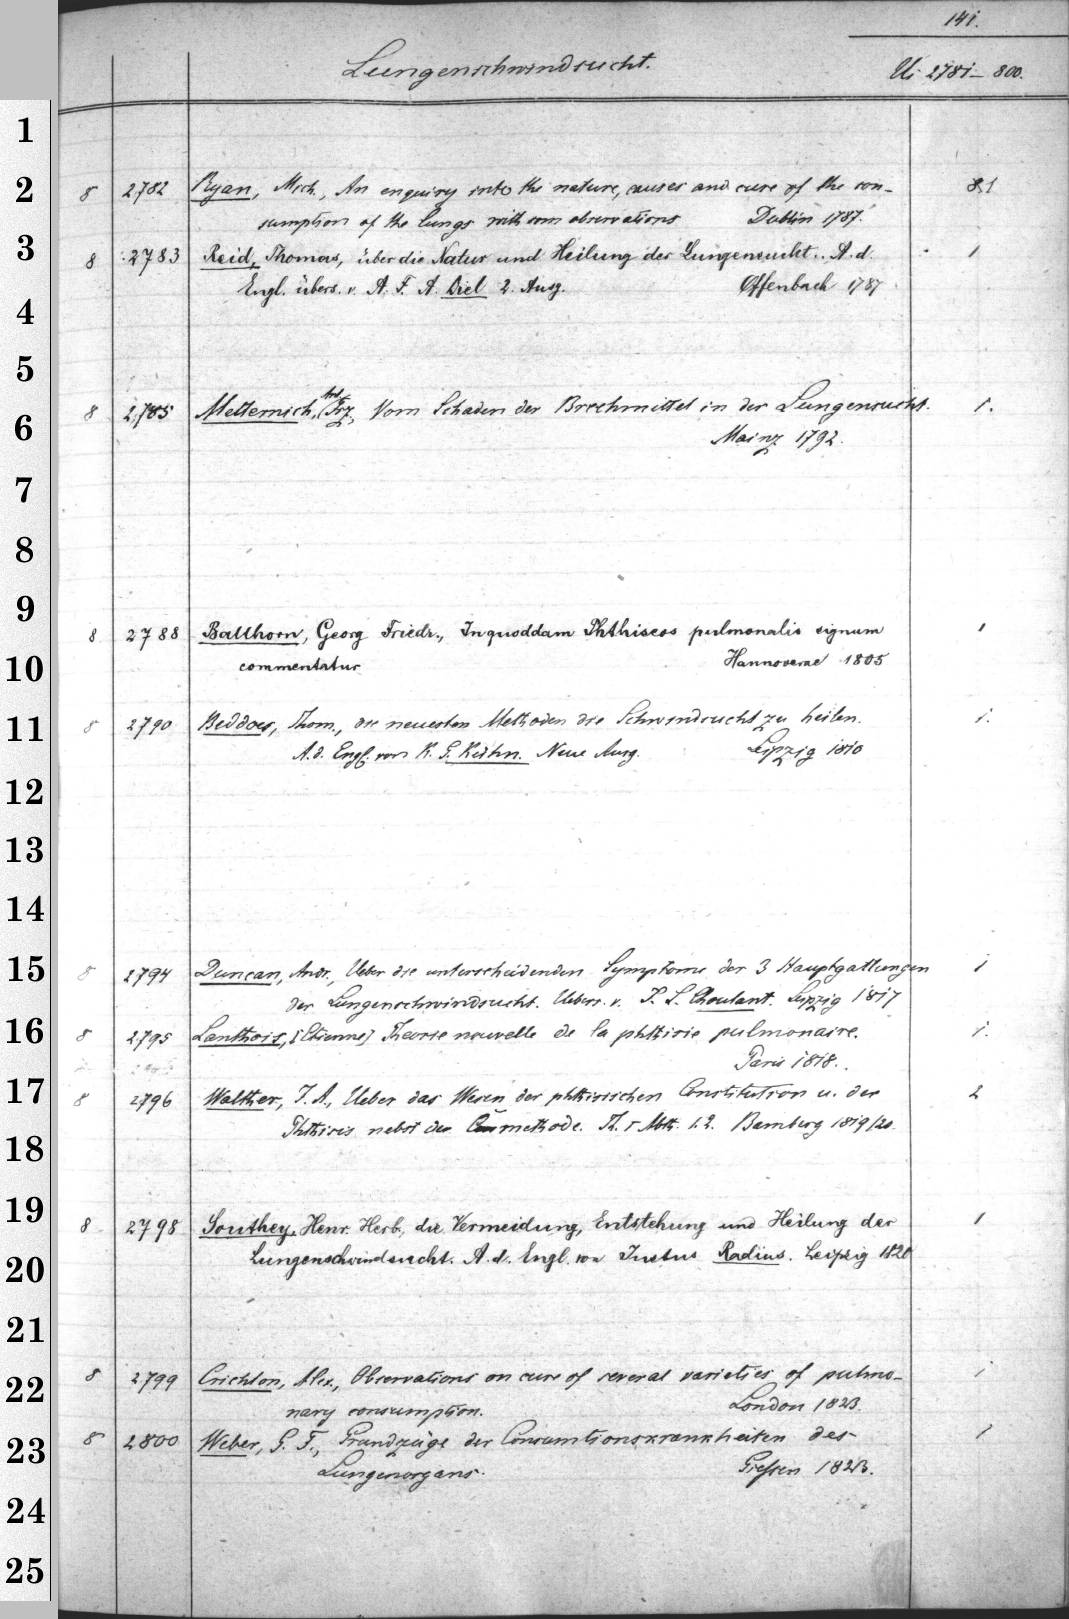 141.
Lungenschwindsucht. Ui 2781 – 800.
1
2
3
4
5
6
7
8
9
10
11
12
13
14
15
16
17
18
19
20
21
22
23
24
25
8 2782 Ryan, Mich., An enquiry into the nature, causes and cure of the con- 1
sumption of the lungs with som observations Dublin 1787.
8 2783 Reid, Thomas, über die Natur und Heilung der Lungensucht.. A. d. 1
Engl. übers. v. A. F. A. Diel 2. Ausg. Offenbach 1787
8 2785 Metternich, Frz, Vom Schaden der Brechmittel in der Lungensucht. 1.
Mainz 1792.
8 2788 Ballhorn, Georg Friedr., Inquoddam Phthiseos pulmonalis signum 1
commentatur Hannoverae 1805
8 2790 Beddoes, Thom., die neuesten Methoden die Schwindsucht zu heilen. 1.
A. d. Engl. von K. G. Kühn. Neue Ausg. Leipzig 1810
8 2794 Duncan, Andr., Ueber die unterscheidenden Symptome der 3 Hauptgattungen 1
der Lungenschwindsucht. Uebers. v. J. L. Choulant. Leipzig 1817
8 2795 Lanthois, [Etienne] Theorie nouvelle de la phthisie pulmonaire. 1.
Paris 1818.
8 2796 Walther, J. A., Ueber das Wesen der phthisischen Constitution u. der 2
Phthisis nebst der Curmethode. Th. I Abth. 1. 2. Bamberg 1819/20
8 2798 Southey, Henr. Herb., die Vermeidung, Entstehung und Heilung der 1
Lungenschwindsucht. A. d. Engl. von Justus Radius. Leipzig 1820
8 2799 Crichton, Alex., Observations on cure of several varieties of pulmo- 1
nary consumption. London 1823.
8 2800 Weber, G. F., Grundzüge der Consumtionskrankheiten des 1
Lungenorgans. Giessen 1823.